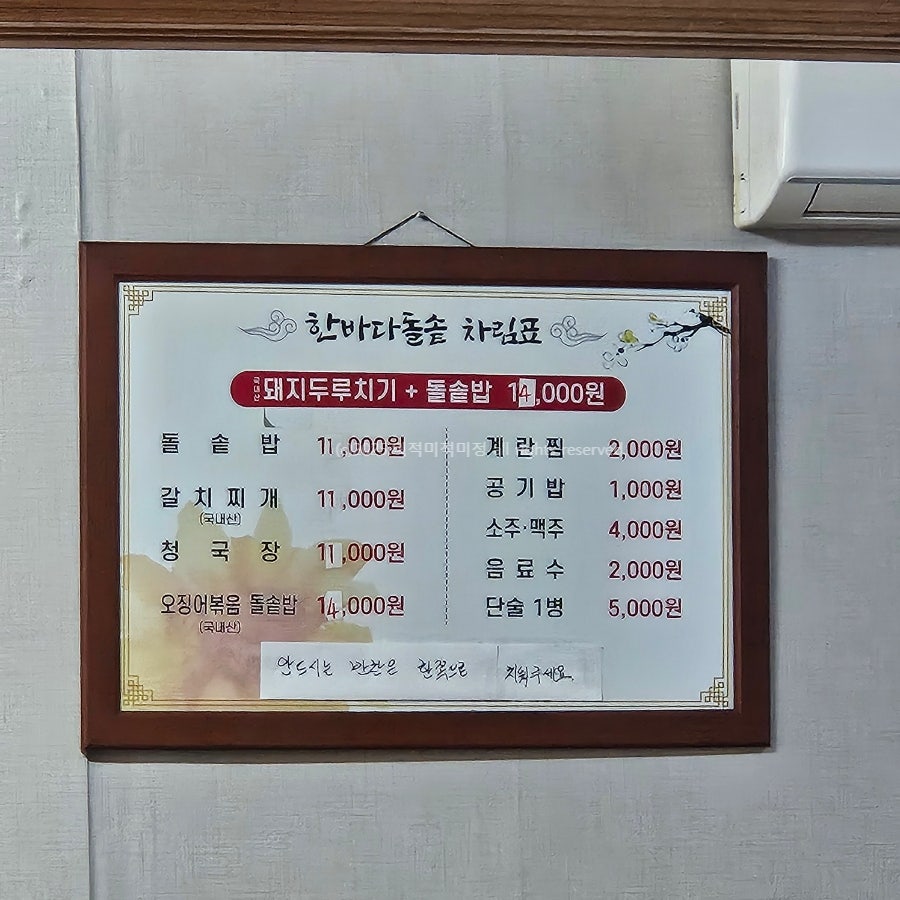 한바다돌솥 차림표
국내산 돼지두루치기 + 돌솥밥 14,000원
돌솥밥 11,000원
갈치찌개 11,000원
(국내산)
청국장 11,000원
오징어볶음 돌솥밥 14,000원
(국내산)
계란찜 2,000원
공기밥 1,000원
소주·맥주 4,000원
음료수 2,000원
단술 1병 5,000원
안드시는 반찬은 한쪽으로 치워주세요.
적미적미정 All rights reserved